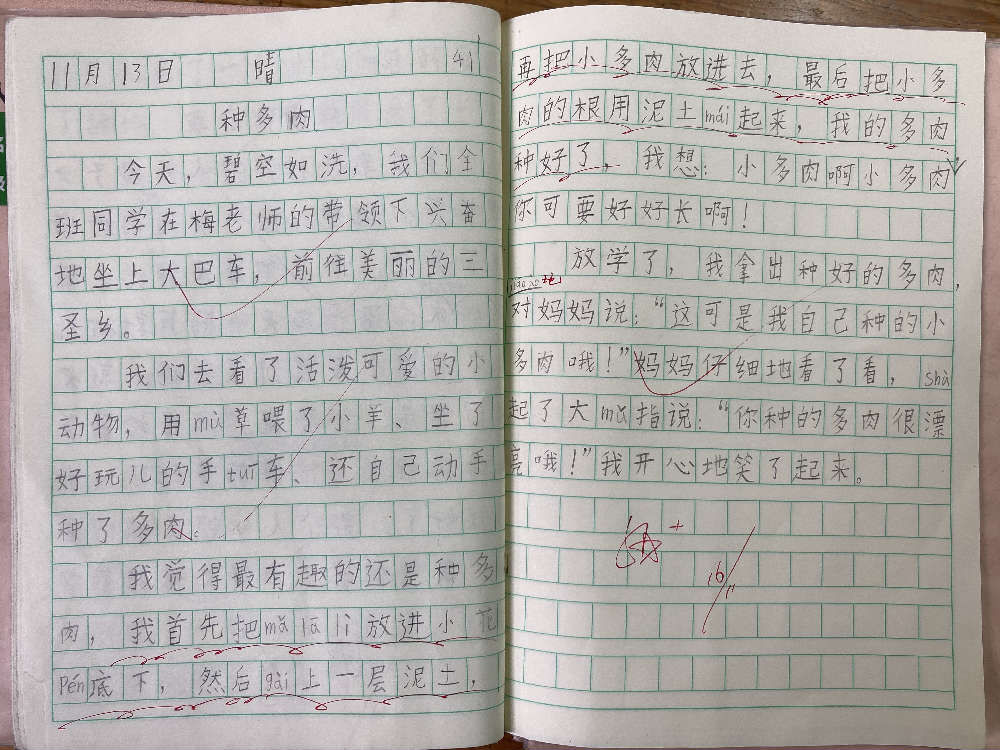 11月13日 晴 41
种多肉
今天，碧空如洗，我们全
班同学在梅老师的带领下兴奋
地坐上大巴车，前往美丽的三
圣乡。
我们去看了活泼可爱的小
动物，用mù草喂了小羊、坐了
好玩儿的手tuī车、还自己动手
种了多肉。
我觉得最有趣的还是种多
肉，我首先把mǔ lā lì放进小花
Pén底下，然后gài上一层泥土，
再把小多肉放进去，最后把小多
肉的根用泥土mái起来，我的多肉
种好了，我想：小多肉啊小多肉
你可要好好长啊！
放学了，我拿出种好的多肉，
地
对妈妈说：“这可是我自己种的小
多肉哦！”妈妈仔细地看了看，shù
起了大mǔ指说：“你种的多肉很漂
亮哦！”我开心地笑了起来。
16/11